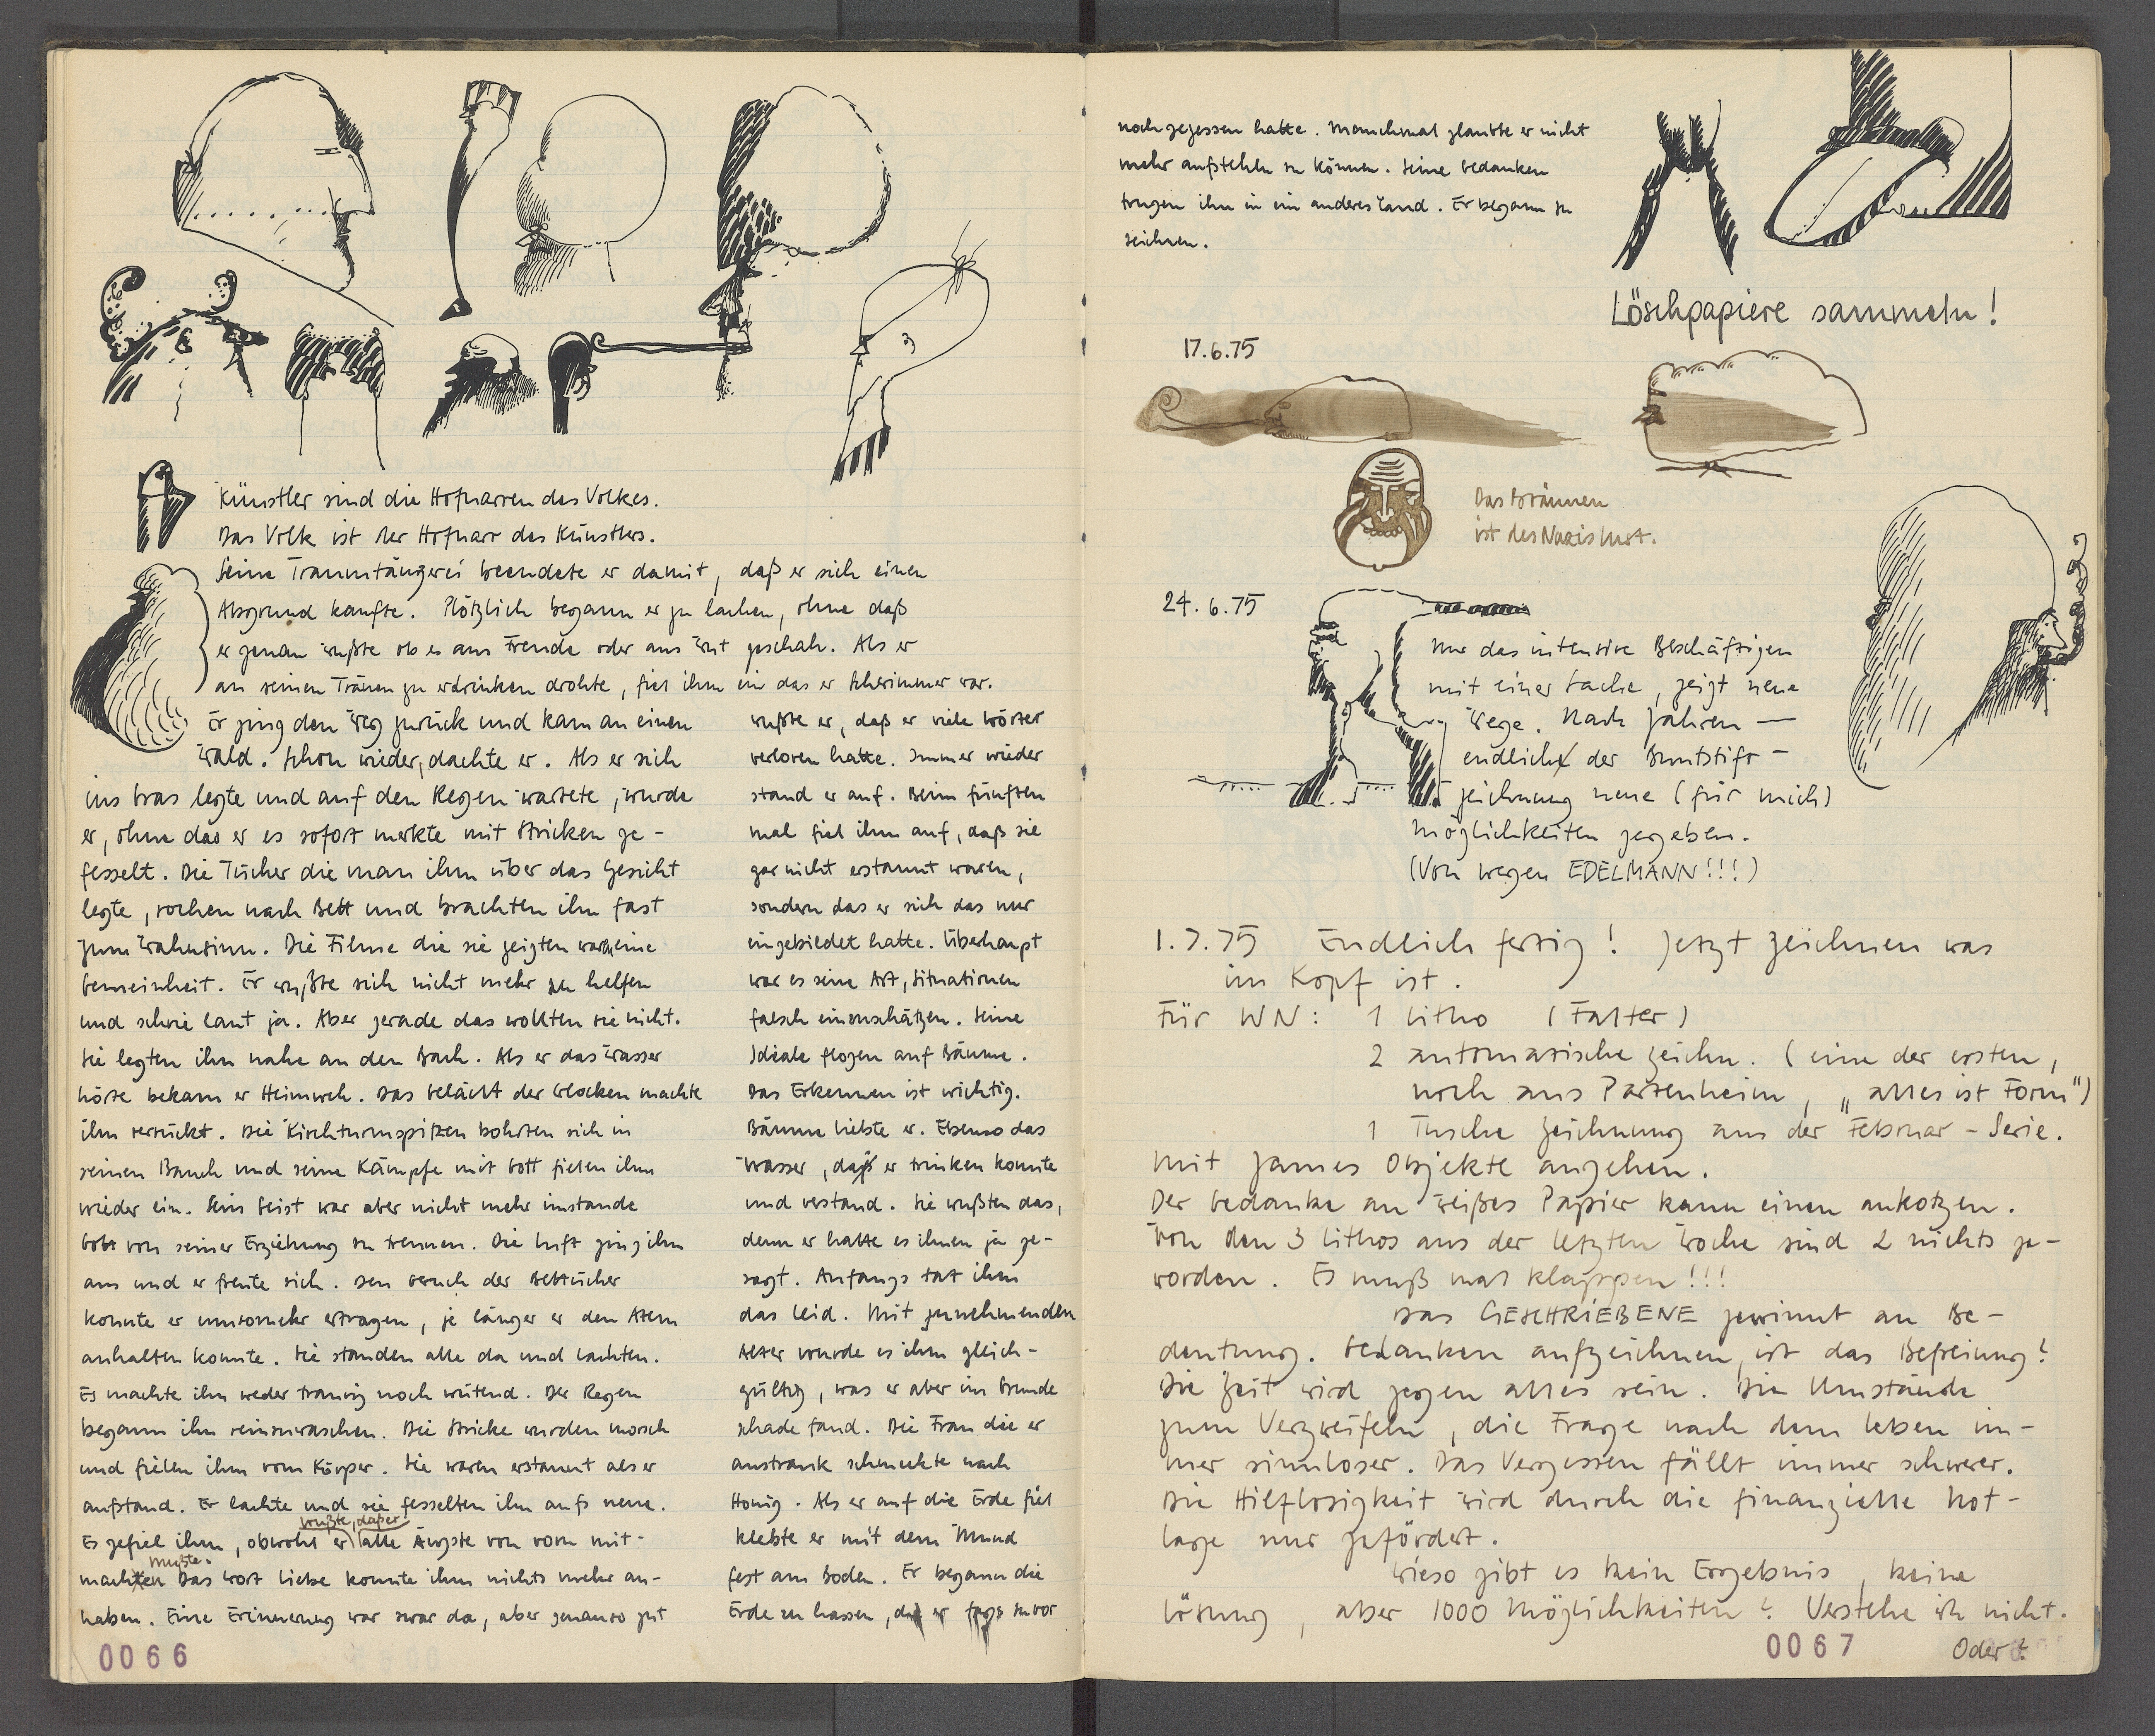 Künstler sind die Hofnarren des Volkes.
Das Volk ist der Hofnarr des Künstlers.
Seine Traumtänzerei beendete er damit, daß er sich einen
Abgrund kaufte. Plötzlich begann er zu lachen, ohne daß
er genau wußte ob es aus Freude oder aus Wut geschah. Als er
an seinen Tränen zu erdrinken drohte, fiel ihm ein das er Schwimmer war.
Er ging den Weg zurück und kam an einen
Wald. Schon wieder, dachte er. Als er sich
ins Gras legte und auf den Regen wartete, wurde
er, ohne das er es sofort merkte mit Stricken ge-
fesselt. Die Tücher die man ihm über das Gesicht
legte, rochen nach Bett und brachten ihn fast
zum Wahnsinn. Die Filme die sie zeigten waren eine
Gemeinheit. Er wußte sich nicht mehr zu helfen
und schrie laut ja. Aber gerade das wollten sie nicht.
Sie legten ihn nahe an den Bach. Als er das Wasser
hörte bekam er Heimweh. Das Geläut der Glocken machte
ihn verrückt. Die Kirchturmspitzen bohrten sich in
seinen Bauch und seine Kämpfe mit Gott fielen ihm
wieder ein. Sein Geist war aber nicht mehr imstande
Gott von seiner Erziehung zu trennen. Die Luft ging ihm
aus und er freute sich. Den Geruch der Bettücher
konnte er umsomehr ertragen, je länger er den Atem
anhalten konnte. Sie standen alle da und lachten.
Es machte ihn weder traurig noch wütend. Der Regen
begann ihn reinzuwaschen. Die Stricke wurden morsch
und fielen ihm vom Körper. Sie waren erstaunt als er
aufstand. Er lachte und sie fesselten ihn aufs neue.
wußte, daß er
Es gefiel ihm, obwohl er alle Ängste von vorn mit-
mußte.
machen Das Wort Liebe konnte ihm nichts mehr an-
haben. Eine Erinnerung war zwar da, aber genauso gut
wußte er, daß er viele Wörter
verloren hatte. Immer wieder
stand er auf. Beim fünften
mal fiel ihm auf, daß sie
gar nicht erstaunt waren,
sondern das er sich das nur
eingebildet hatte. Überhaupt
war es seine Art, Situationen
falsch einzuschätzen. Seine
Ideale flogen auf Bäume.
Das Erkennen ist wichtig.
Bäume liebte er. Ebenso das
Wasser, daß er trinken konnte
und verstand. Sie wußten das,
denn er hatte es ihnen ja ge-
sagt. Anfangs tat ihm
das leid. Mit zunehmenden
Alter wurde es ihm gleich-
gültig, was er aber im Grunde
schade fand. Die Frau die er
austrank schmeckte nach
Honig. Als er auf die Erde fiel
klebte er mit dem Mund
fest am Boden. Er begann die
Erde zu hassen, die er tags zuvor
0066
noch gegessen hatte. Manchmal glaubte er nicht
mehr aufstehen zu können. Seine Gedanken
trugen ihn in ein anderes Land. Er begann zu
zeichnen.
Löschpapiere sammeln!
17.6.75
Das Bräunen
ist des Nazis Lust.
24.6.75
Nur das intensive Beschäftigen
mit einer Sache, zeigt neue
Wege. Nach Jahren —
endlich der Buntstift-
zeichnung neue (für mich)
Möglichkeiten gegeben.
(Von wegen EDELMANN!!!)
1.7.75 Endlich fertig! Jetzt zeichnen was
im Kopf ist.
Für WN: 1 Litho (Falter)
2 automatische Zeichn. (eine der ersten,
noch aus Partenheim, „alles ist Form")
1 Tusche Zeichnung aus der Februar-Serie.
Mit James Objekte angehen.
Der Gedanke an weißes Papier kann einen ankotzen.
Von den 3 Lithos aus der letzten Woche sind 2 nichts ge-
worden. Es muß mal klappen!!!
Das GESCHRIEBENE gewinnt an Be-
deutung. Gedanken aufzeichnen, ist das Befreiung?
Die Zeit wird gegen alles sein. Die Umstände
zum Verzweifeln, die Frage nach dem Leben im-
mer sinnloser. Das Vergessen fällt immer schwerer.
Die Hilflosigkeit wird durch die finanzielle Not-
lage nur gefördert.
Wieso gibt es kein Ergebnis, keine
Lösung, aber 1000 Möglichkeiten? Verstehe ich nicht.
Oder?
0067